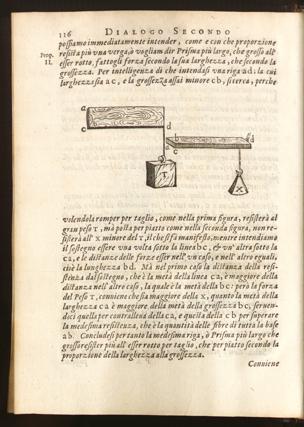 116 DIALOGO SECONDO
possiamo immediatamente intender, come e con che proporzione
resista più una verga, ò vogliam dir Prisma più largo, che grosso all'
Prop. esser rotto, fattogli forza secondo la sua larghezza, che secondo la
II. grossezza. Per intelligenza di che intendasi una riga ad: la cui
larghezza sia ac, e la grossezza assai minore cb, si cerca, perche
a
c
d
T
b
a
c
d
X
volendola romper per taglio, come nella prima figura, resisterà al
gran peso T, mà posta per piatto come nella seconda figura, non re-
sisterà all' X minore del T, il che si fà manifesto, mentre intendiamo
il sostegno essere una volta sotto la linea bc, & un' altra sotto la
ca, e le distanze delle forze esser nell' un caso, e nell' altro eguali,
cioè la lunghezza bd. Mà nel primo caso la distanza della resi-
stenza dal sostegno, che è la metà della linea ca, è maggiore della
distanza nell' altro caso, la quale è la metà della bc: però la forza
del Peso T, conviene che sia maggiore della X, quanto la metà della
larghezza ca è maggiore della metà della grossezza bc, serven-
doci quella per contralleva della ca, e questa della cb per superare
la medesima resistenza, che è la quantità delle fibre di tutta la base
ab. Concludesi per tanto la medesima riga, ò Prisma più largo che
grosso resister più all' esser rotto per taglio, che per piatto secondo la
proporzione della larghezza alla grossezza.
Conviene